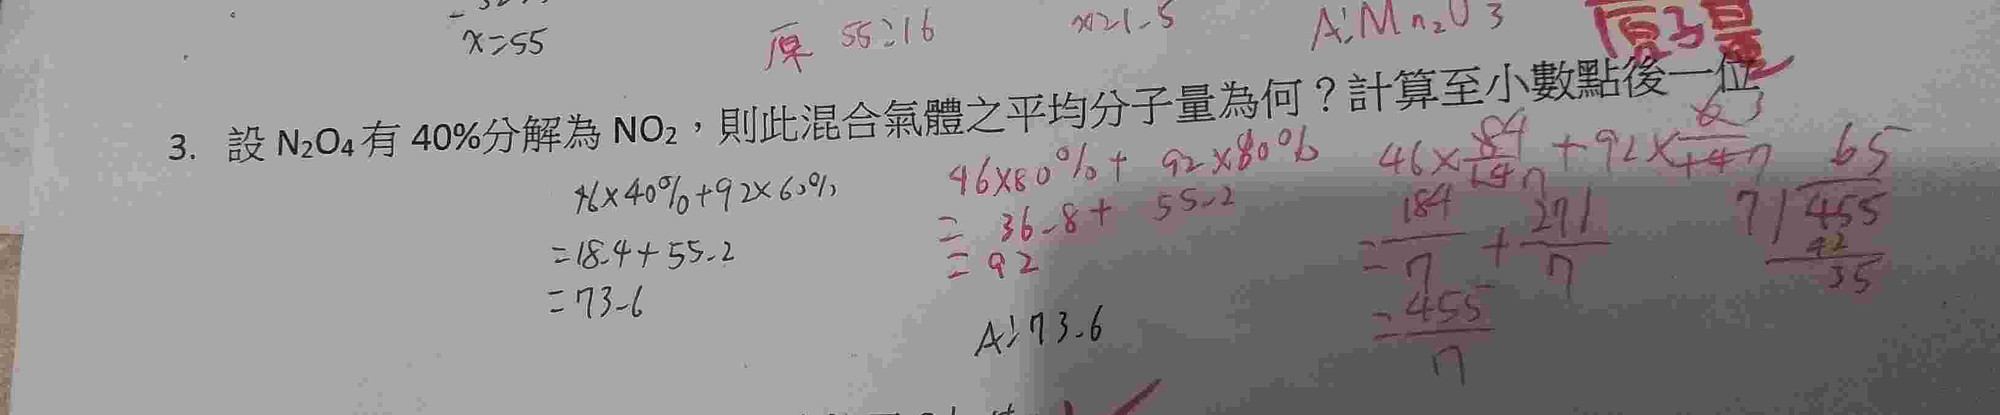 x=55
原 55:16
x=1.5
A:Mn₂O₃
原子量
3. 設 N₂O₄ 有 40%分解為 NO₂,則此混合氣體之平均分子量為何?計算至小數點後一位
46×40%+92×60%
=18.4+55.2
=73.6
46×80%+ 92×80%
= 36.8+ 55.2
=92
A:73.6
46×8/14 +92×6/14
=184/7 + 271/7
=455/7
65
7)455
42
35